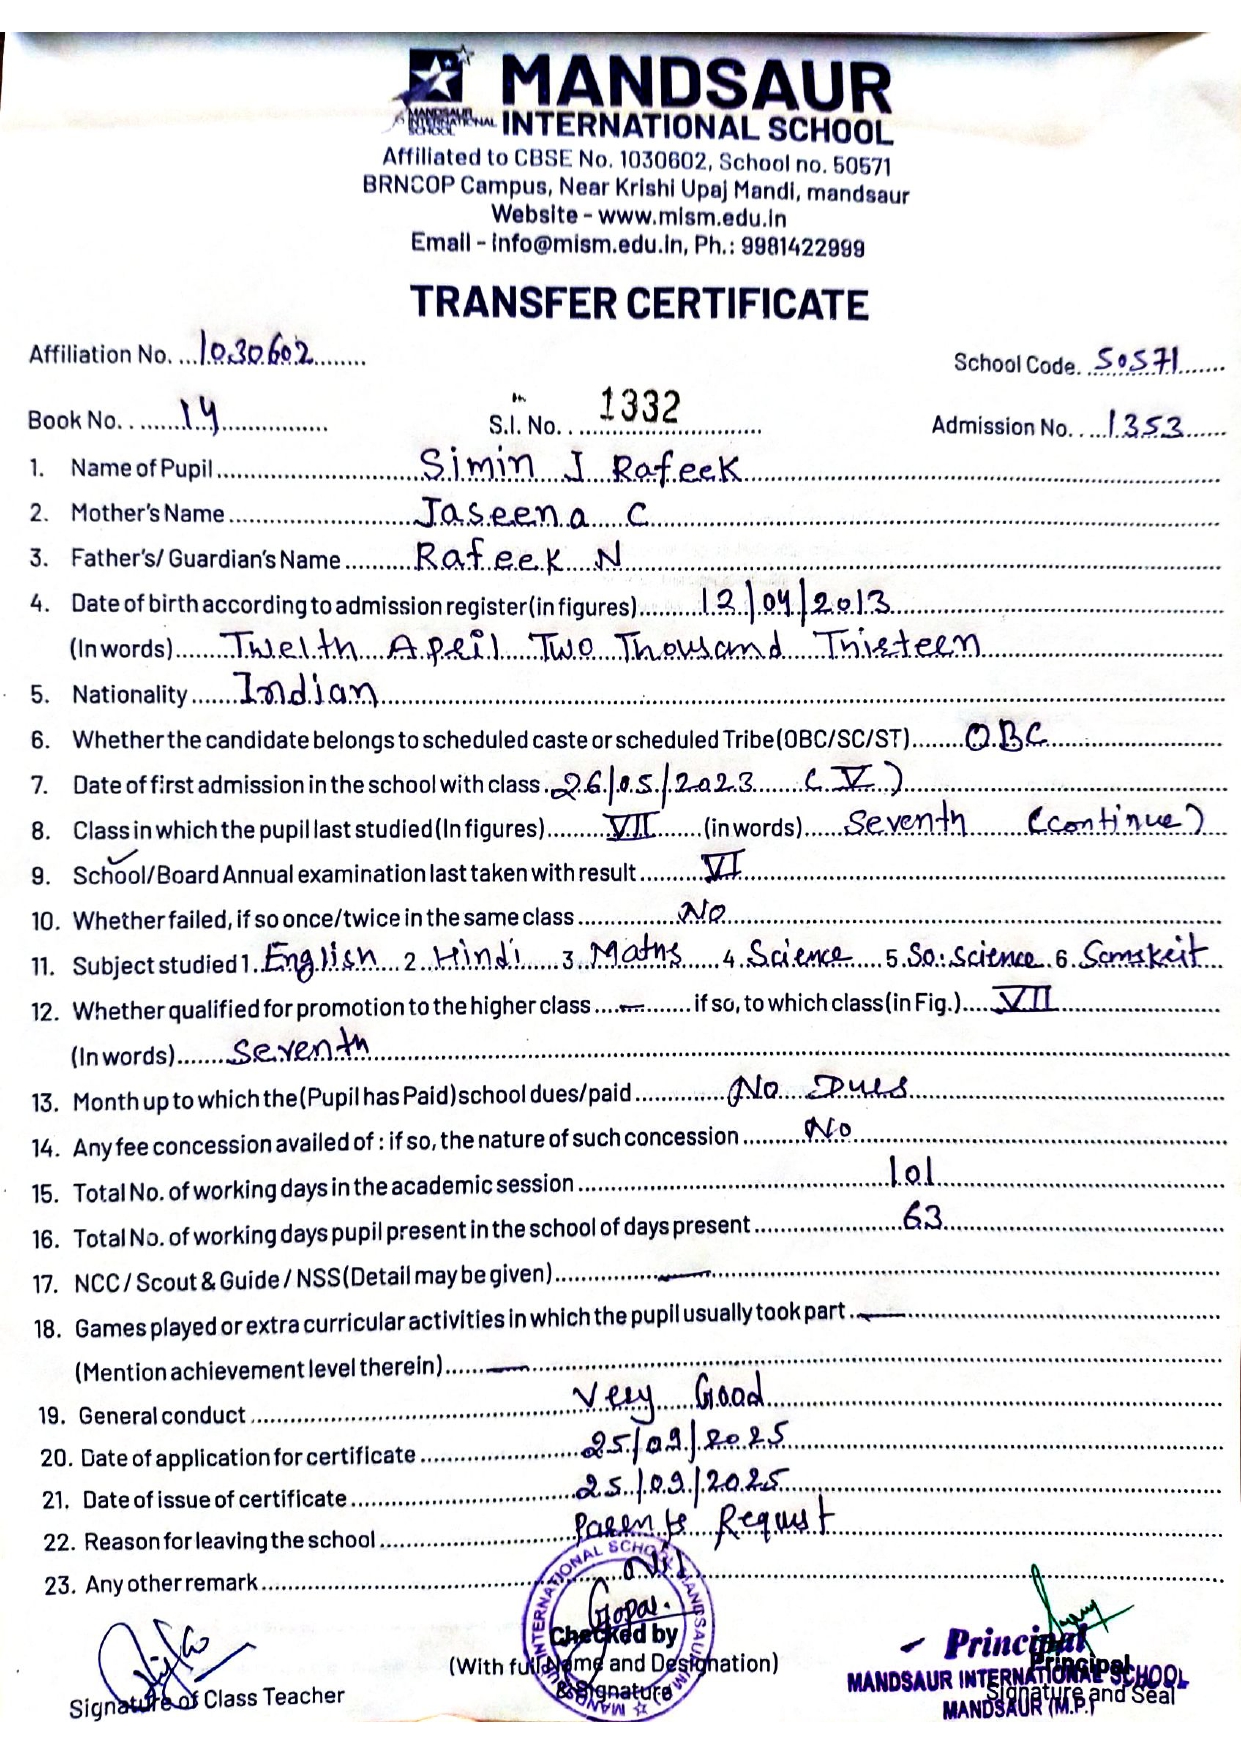 MANDSAUR
INTERNATIONAL SCHOOL
MANDSAUR INTERNATIONAL SCHOOL
Affiliated to CBSE No. 1030602, School no. 50571
BRNCOP Campus, Near Krishi Upaj Mandi, mandsaur
Website - www.mism.edu.in
Email - info@mism.edu.in, Ph.: 9981422999
TRANSFER CERTIFICATE
Affiliation No. ...1030602........ School Code. 50571.......
Book No. . .......14................ S.I. No. . 1332 Admission No. . ...1353......
1. Name of Pupil ........ Simin J Rafeek
2. Mother's Name ........ Jaseena C
3. Father's/ Guardian's Name ........ Rafeek N
4. Date of birth according to admission register (in figures) ........ 12/04/2013
(In words) ........ Twelth April Two Thousand Thirteen
5. Nationality ....... Indian
6. Whether the candidate belongs to scheduled caste or scheduled Tribe (OBC/SC/ST) ....... OBC
7. Date of first admission in the school with class . 26/05/2023 ...... (V)
8. Class in which the pupil last studied (In figures) ........ VII ...... (in words) ..... Seventh (continue)
9. School/Board Annual examination last taken with result ........ VI
10. Whether failed, if so once/twice in the same class ........ No
11. Subject studied 1. English 2. Hindi 3. Maths 4. Science 5. So. Science 6. Samskrit
12. Whether qualified for promotion to the higher class ....—........ if so, to which class (in Fig.) .... VII
(In words) ....... Seventh
13. Month up to which the (Pupil has Paid) school dues/paid ........ No Dues
14. Any fee concession availed of : if so, the nature of such concession ........ No
15. Total No. of working days in the academic session ........ 101
16. Total No. of working days pupil present in the school of days present ........ 63
17. NCC / Scout & Guide / NSS (Detail may be given) ........ —
18. Games played or extra curricular activities in which the pupil usually took part . —
(Mention achievement level therein) ...... —
19. General conduct ........ Very Good
20. Date of application for certificate ........ 25/09/2025
21. Date of issue of certificate ........ 25/09/2025
22. Reason for leaving the school ........ Parents Requst
23. Any other remark ........ Nil
Gopal.
Checked by
(With full Name and Designation)
& Signature
Signature of Class Teacher
Principal
MANDSAUR INTERNATIONAL SCHOOL
MANDSAUR (M.P.)
Principal
Signature and Seal
MANDSAUR INTERNATIONAL SCHOOL MANDSAUR (M.P.)